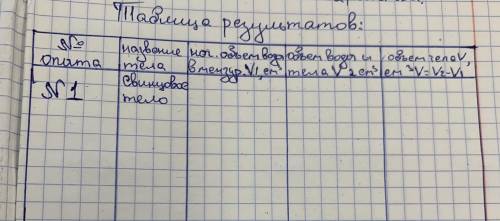 Таблица результатов:
№ опыта | название тела | нач. объем воды в мензур. V1, см³ | объем воды и тела V2 см³ | объем тела V, см³ V=V2-V1
№1 | Свинцовое тело